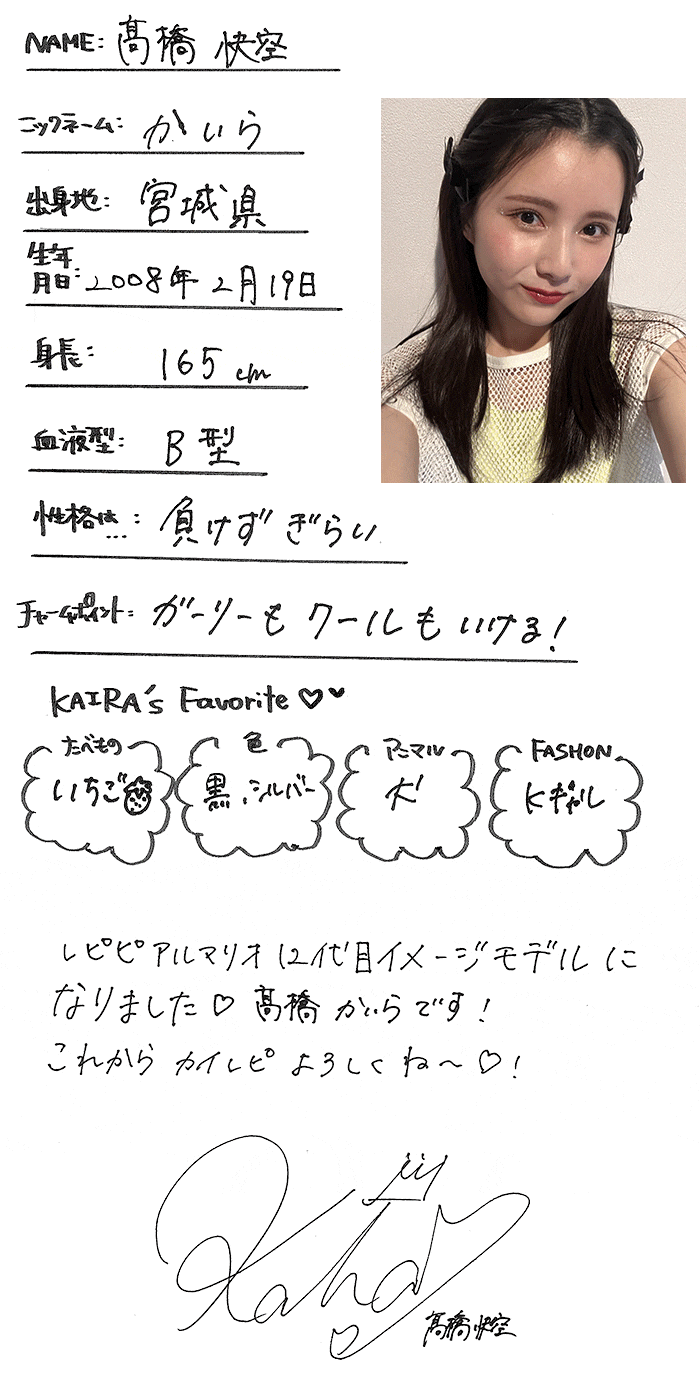 NAME: 髙橋 快空
ニックネーム: かいら
出身地: 宮城県
生年月日: 2008年 2月19日
身長: 165 cm
血液型: B型
性格は…: 負けずぎらい
チャームポイント: ガーリーも クールも いける!
KAIRA's Favorite♡♥
たべもの
いちご
色
黒、シルバー
アニマル
犬
FASHON
Kギャル
レピピアルマリオ12代目イメージモデルに
なりました♡ 髙橋 かいらです!
これから カイレピ よろしくね〜♡!
髙橋快空